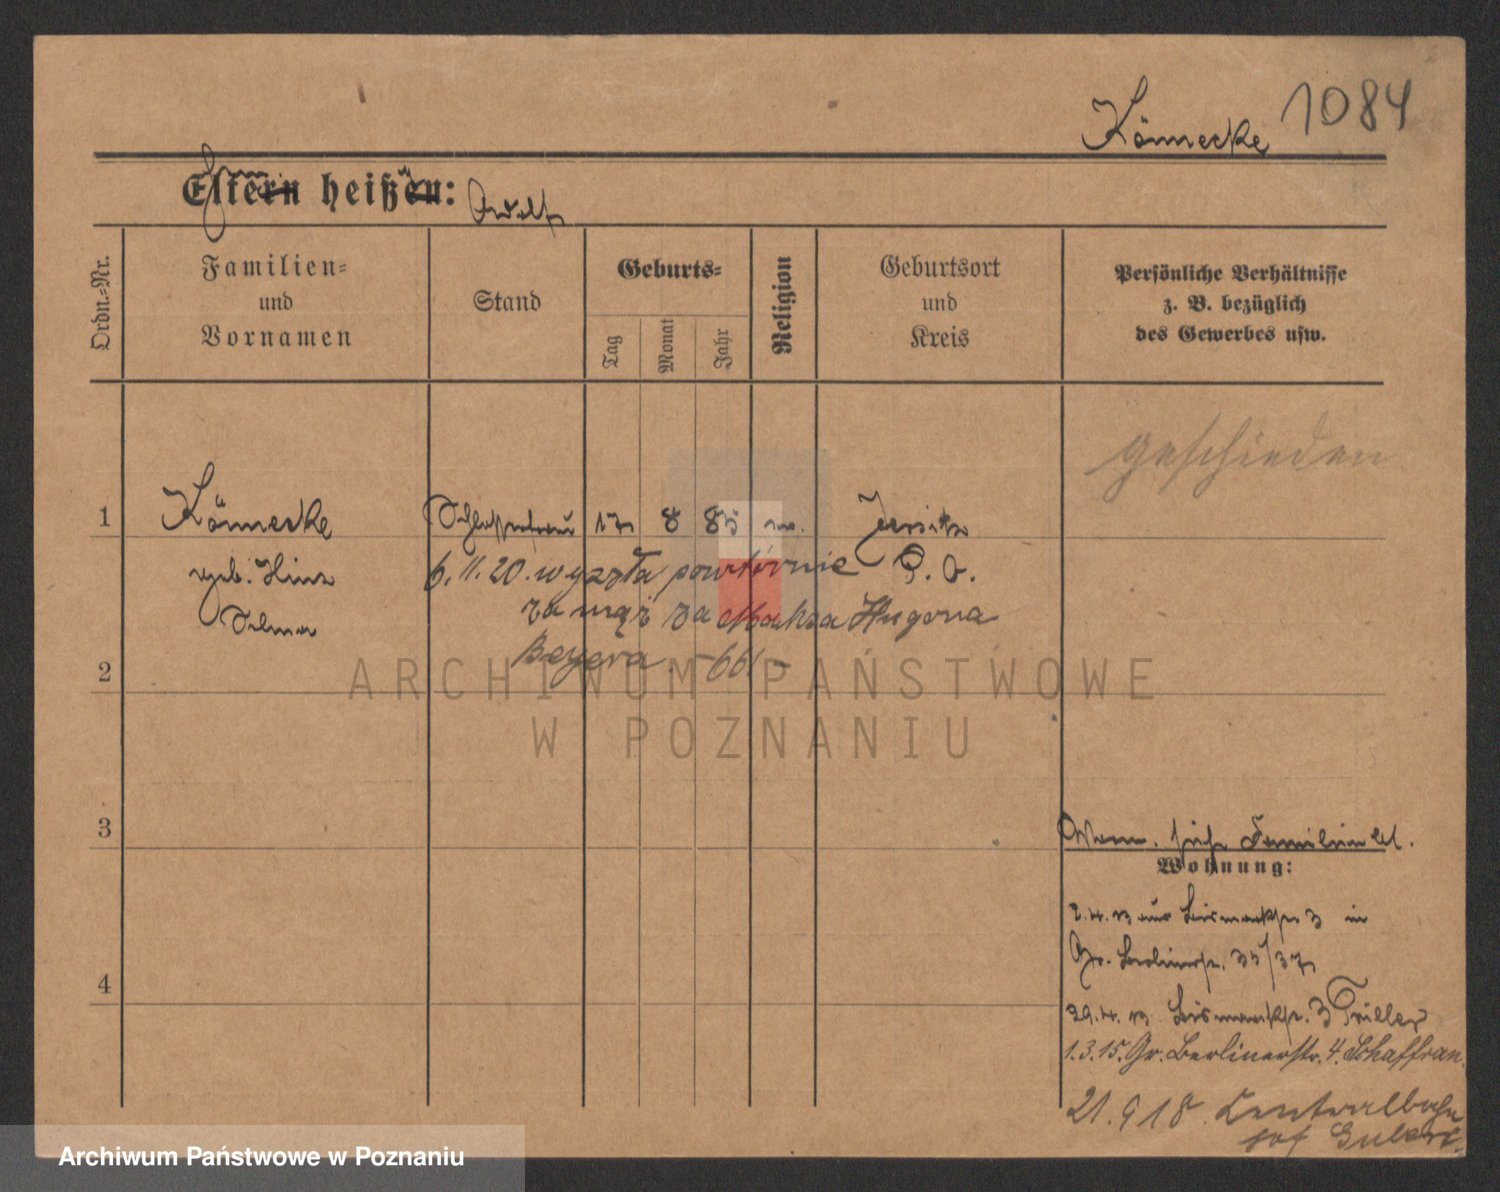 Könnecke 1084
Eltern heißen: Adolf
Ordn.-Nr.
Familien-
und
Vornamen
Stand
Geburts-
Tag
Monat
Jahr
Religion
Geburtsort
und
Kreis
Persönliche Verhältnisse
z. B. bezüglich
des Gewerbes usw.
geschieden
1
Könnecke
17 8 85
Jersitz
geb. Hinz
6.11.20. wyszła powtórnie
P. O.
Selma
za mąż za Maksa Hugona
2
Beyera. -661-
3
Wohnung:
2.4.13 aus Bismarckstr 3 in
Gr. Berlinerstr. 35/37
4
29.4.13 Bismarckstr. 3 Triller
1.3.15. Gr. Berlinerstr. 4. Schaffran.
21.9 18. Centralbahn
hof
ARCHIWUM PAŃSTWOWE
W POZNANIU
Archiwum Państwowe w Poznaniu